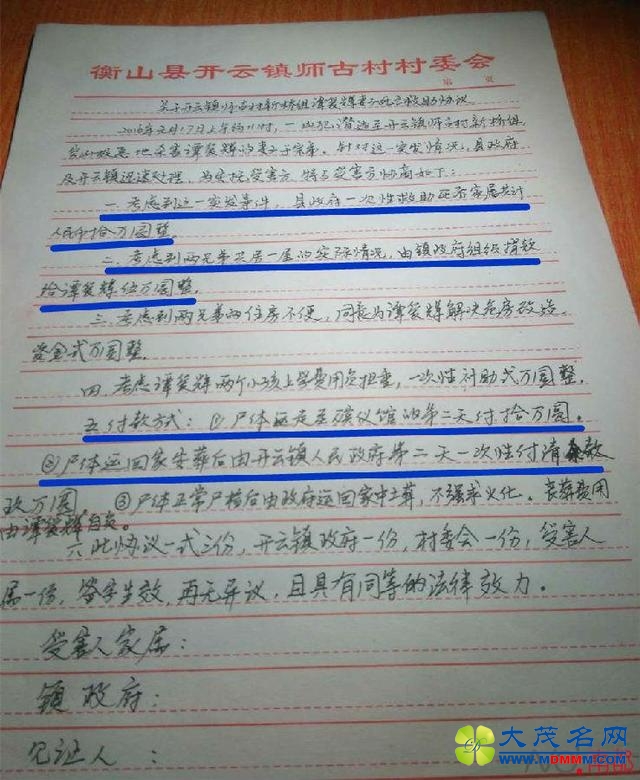 衡山县开云镇师古村村委会
第 页
关于开云镇师古村新桥组谭爱辉妻子死亡救助协议
2016年2月17日上午约11时，一凶犯潜逃至开云镇师古村新桥组
地杀害谭爱辉的妻子。针对这一突发情况，县政府
及开云镇迅速处理，为安抚受害方，特与受害方协商如下：
一、考虑到这一突发事件，县政府一次性救助死者家属共计
人民币拾万圆整。
二、考虑到两兄弟共居一屋的实际情况，由镇政府组织捐款
给谭爱辉伍万圆整。
三、考虑到两兄弟两住房不便，同意为谭爱辉解决危房改造
资金弍万圆整。
四、考虑谭爱辉两个小孩上学费用负担重，一次性补助弍万圆整。
五付款方式：①尸体运走至殡仪馆的第二天付拾万圆。
②尸体运回家安葬后由开云镇人民政府第二天一次性付清余款
玖万圆 ③尸体正常尸检后由政府运回家中土葬，不强求火化。丧葬费用
由谭爱辉自负。
六 此协议一式三份，开云镇政府一份，村委会一份，受害人
属一份，签字生效，再无异议，且具有同等的法律效力。
受害人家属：
镇政府：
见证人：
大茂名网
MDMMM.COM